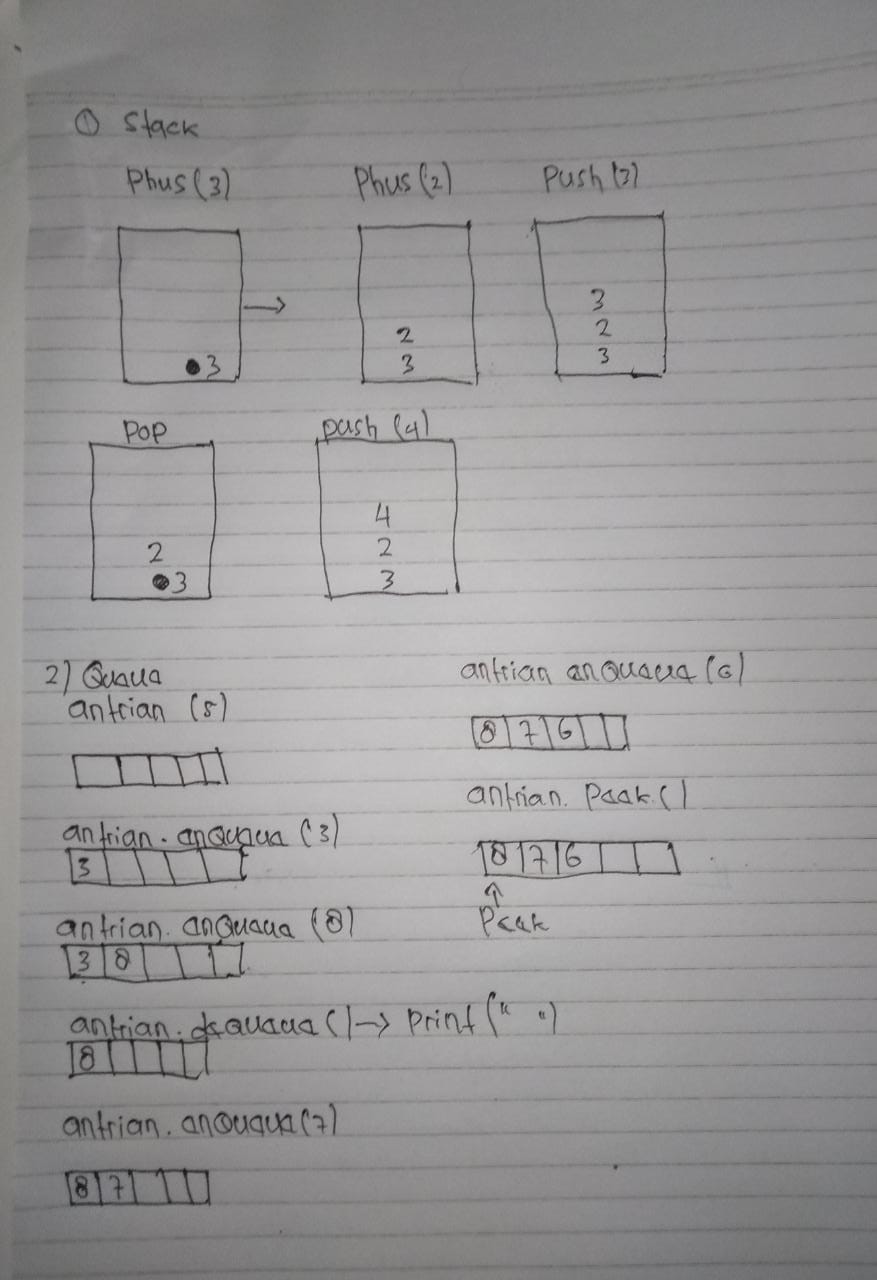 ① Stack
Phus (3) Phus (2) Push (3)
3
2
3
3
2
3
Pop push (4)
2
3
4
2
3
2) Quaua
antrian (5)
antrian. anquaua (3)
3
antrian. anQuaua (8)
3 8
antrian. dequaua () → print (" ")
8
antrian. anQuaua (7)
8 7
antrian anQuaua (6)
8 7 6
antrian. Paak ()
8 7 6
↑
Peak